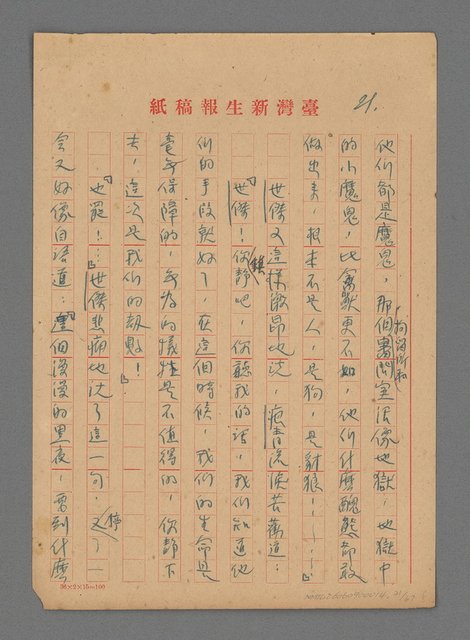 紙稿報生新灣臺
21.
他们都是魔鬼，那個拘留所和審問室活像地獄，地獄中
的小魔鬼，比禽獸更不如，他们什麼醜態都敢
做出来，根本不是人，是狗，是豺狼！——……」
世傑又這樣激昂地说，痕青流淚苦勸道：
「世傑！你鎮靜吧，你聽我的话，我们知道他
们的手段就好了，在這個時候，我们的生命是
毫無保障的，無為的犧牲是不值得的，你靜下
去，這次是我们的劫數！」
「也罷！……」世傑悲痛地说了這一句，又停了一
会又好像自语道：「這個漫漫的黑夜，要到什麼
36×2×15=100